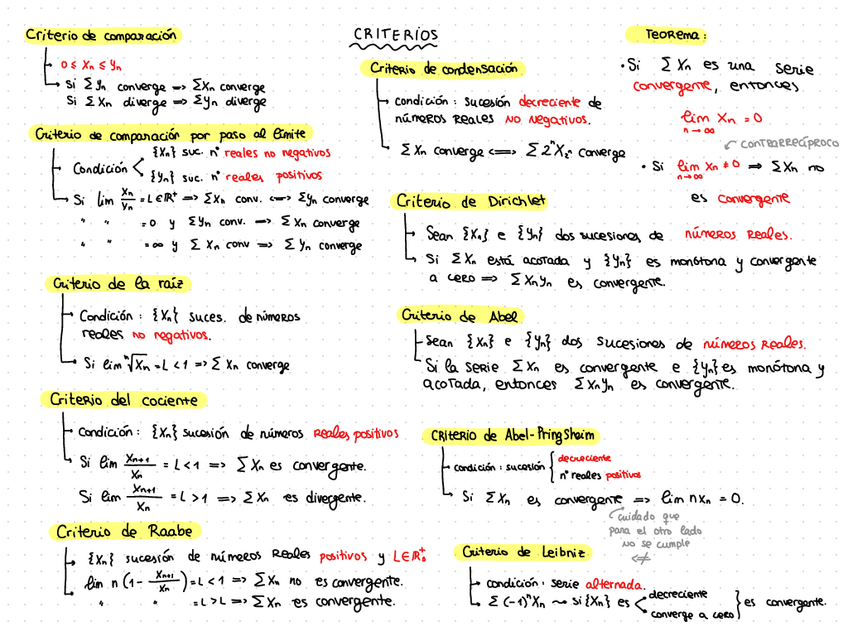 CRITERIOS
Criterio de comparación
0 ≤ Xn ≤ Yn
Si ΣYn converge => ΣXn converge
Si ΣXn diverge => ΣYn diverge
Criterio de comparación por paso al límite
Condición < {Xn} suc. nº reales no negativos
{Yn} suc. nº reales positivos
Si lim Xn/Yn = L∈ℝ⁺ => ΣXn conv. <=> ΣYn converge
" " = 0 y ΣYn conv. => ΣXn converge
" " = ∞ y ΣXn conv => ΣYn converge
Criterio de la raíz
Condición: {Xn} suces. de números
reales no negativos.
Si lim ⁿ√Xn = L < 1 => ΣXn converge
Criterio del cociente
Condición: {Xn} sucesión de números reales positivos
Si lim Xn+1/Xn = L < 1 => ΣXn es convergente.
Si lim Xn+1/Xn = L > 1 => ΣXn es divergente.
Criterio de Raabe
{Xn} sucesión de números reales positivos y L∈ℝ₀⁺
lim n(1 - Xn+1/Xn) = L < 1 => ΣXn no es convergente.
" " = L > L => ΣXn es convergente.
Criterio de condensación
condición: sucesión decreciente de
números reales no negativos.
ΣXn converge <=> Σ2ⁿX₂ⁿ converge
Criterio de Dirichlet
Sean {Xn} e {Yn} dos sucesiones de números reales.
Si ΣXn está acotada y {Yn} es monótona y convergente
a cero => ΣXnYn es convergente.
Criterio de Abel
Sean {Xn} e {Yn} dos sucesiones de números reales.
Si la serie ΣXn es convergente e {Yn} es monótona y
acotada, entonces ΣXnYn es convergente.
Criterio de Abel-Pringsheim
condición: sucesión { decreciente
nº reales positivos
Si ΣXn es convergente => lim nXn = 0.
cuidado que
para el otro lado
no se cumple
<≠
Criterio de Leibniz
condición: serie alternada.
Σ(-1)ⁿXn ~> si {Xn} es < decreciente
converge a cero } es convergente.
Teorema:
· Si ΣXn es una serie
convergente, entonces
lim Xn = 0
n→∞
CONTRARRECÍPROCO
· Si lim Xn ≠ 0 => ΣXn no
n→∞
es convergente